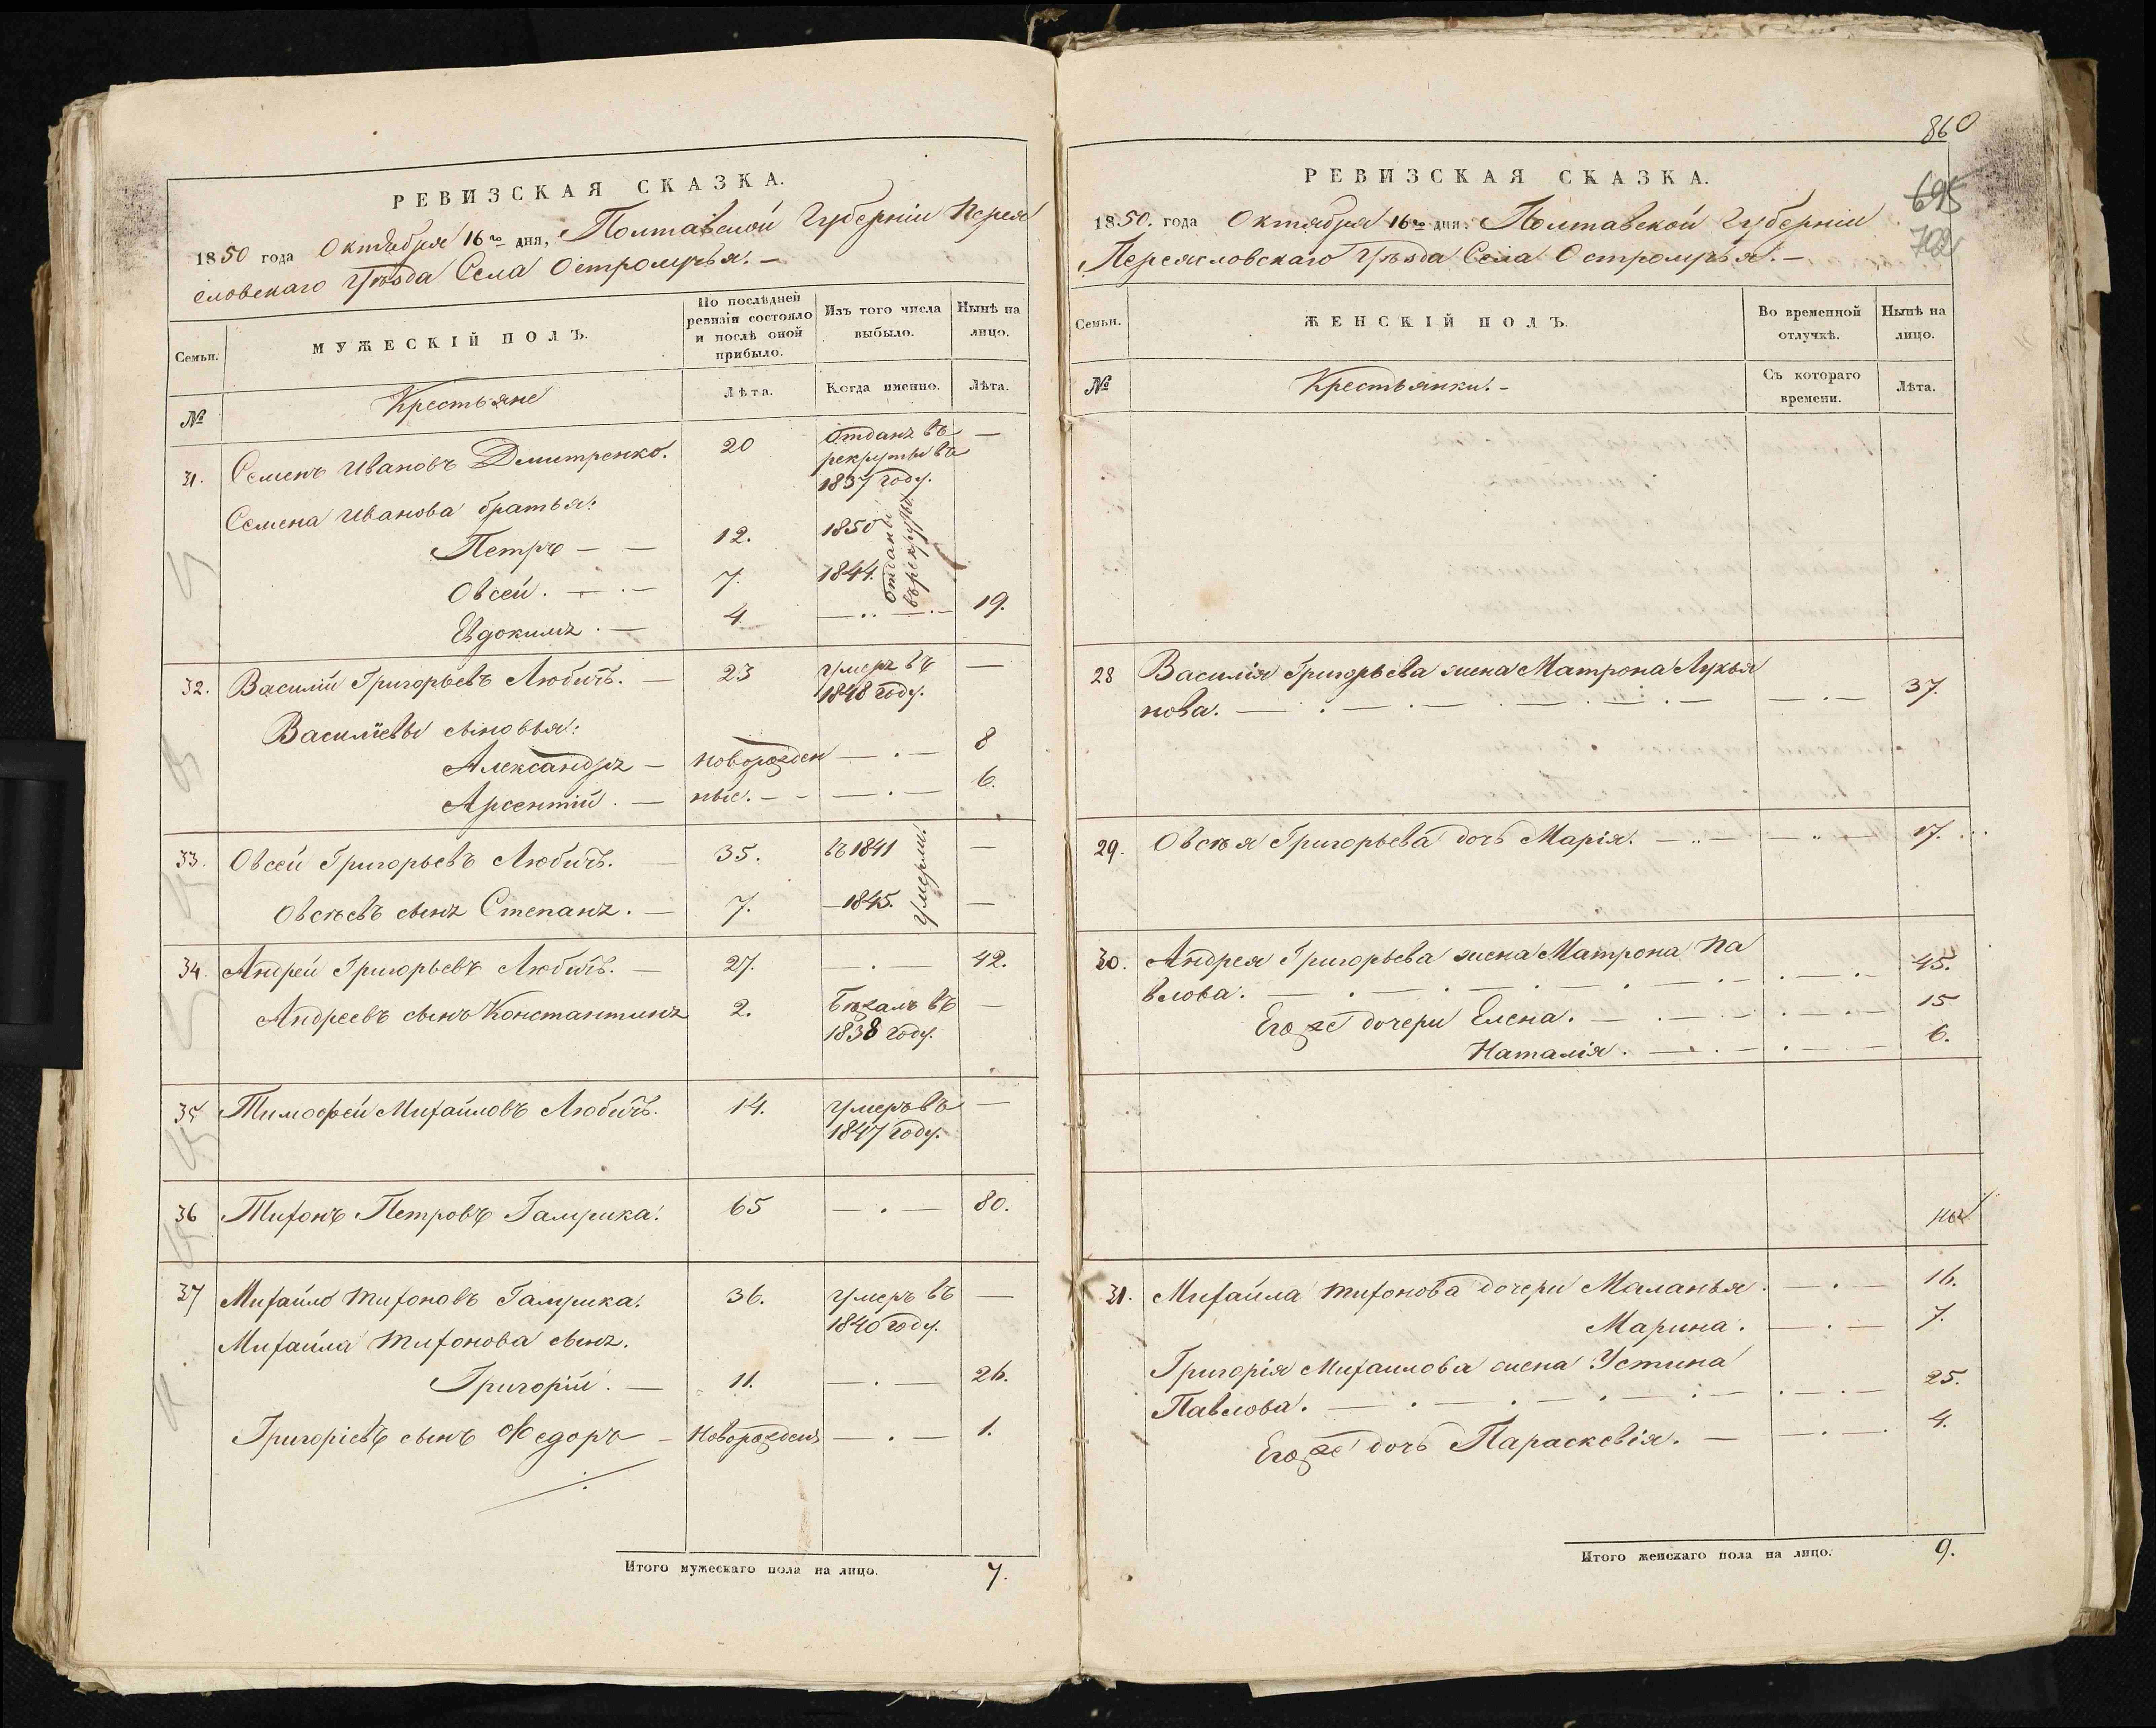 РЕВИЗСКАЯ СКАЗКА.
1850 года Октября 16го дня, Полтавской Губерніи Перея
словскаго Уѣзда Села Остролучья. —
Семьи.
МУЖЕСКІЙ ПОЛЪ.
По послѣдней
ревизіи состояло
и послѣ оной
прибыло.
Изъ того числа
выбыло.
Нынѣ на
лицо.
№
Крестьяне
Лѣта.
Когда именно.
Лѣта.
31. Семенъ Ивановъ Дмитренко. 20 Отданъ въ —
рекруты въ
1837 году.
Семена Иванова братья:
Петръ — — 12. 1850
Овсей. — . — 7. 1844.
отданы
въ рекруты.
Евдокимъ . — 4. — . . — . — 19.
32. Василій Григорьевъ Любичъ. — 23 умеръ въ —
1848 году.
Василіевы сыновья:
Александръ — новорожден — . — 8
Арсентій . — ные. — - — . — 6.
33. Овсей Григорьевъ Любичъ. — 35. въ 1841 —
Овсѣевъ сынъ Степанъ. — 7. — 1845. —
умерли.
34. Андрей Григорьевъ Любичъ. — 27. — . 42.
Андреевъ сынъ Константинъ 2. Бѣжалъ въ —
1838 году.
35 Тимофей Михайловъ Любичъ. 14. умеръ въ —
1847 году.
36 Тихонъ Петровъ Гамрика. 65 — . — 80.
37 Михайло Тихоновъ Гамрика. 36. умеръ въ —
1840 году.
Михайла Тихонова сынъ.
Григорій. — 11. — . — 26.
Григоріевъ сынъ Федоръ — Новорожденъ — . — 1.
Итого мужескаго пола на лицо. 7.
860
695
РЕВИЗСКАЯ СКАЗКА.
1850. года Октября 16го дня. Полтавской Губерніи
Переясловскаго Уѣзда Села Остролучья. —
Семьи.
ЖЕНСКІЙ ПОЛЪ.
Во временной
отлучкѣ.
Нынѣ на
лицо.
№
Крестьянки. -
Съ котораго
времени.
Лѣта.
28 Василія Григорьева жена Матрона Лукья
нова. — . — . — . — . — — . — 37.
29. Овсѣя Григорьева дочь Марія. — .. — — .. — 17.
30. Андрея Григорьева жена Матрона Па
влова. — . — . — . — . — . — . — 45.
Его же дочери Елена. — . — . — . — . — 15
Наталія. — . — . — 6.
31. Михайла Тихонова дочери Маланья. — . — 16.
Марина. — . — 7.
Григорія Михаилова жена Устина
Павлова. — . — . — . — . — . — 25.
Его же дочь Парасковія. — — . — . 4.
Итого женскаго пола на лицо. 9.